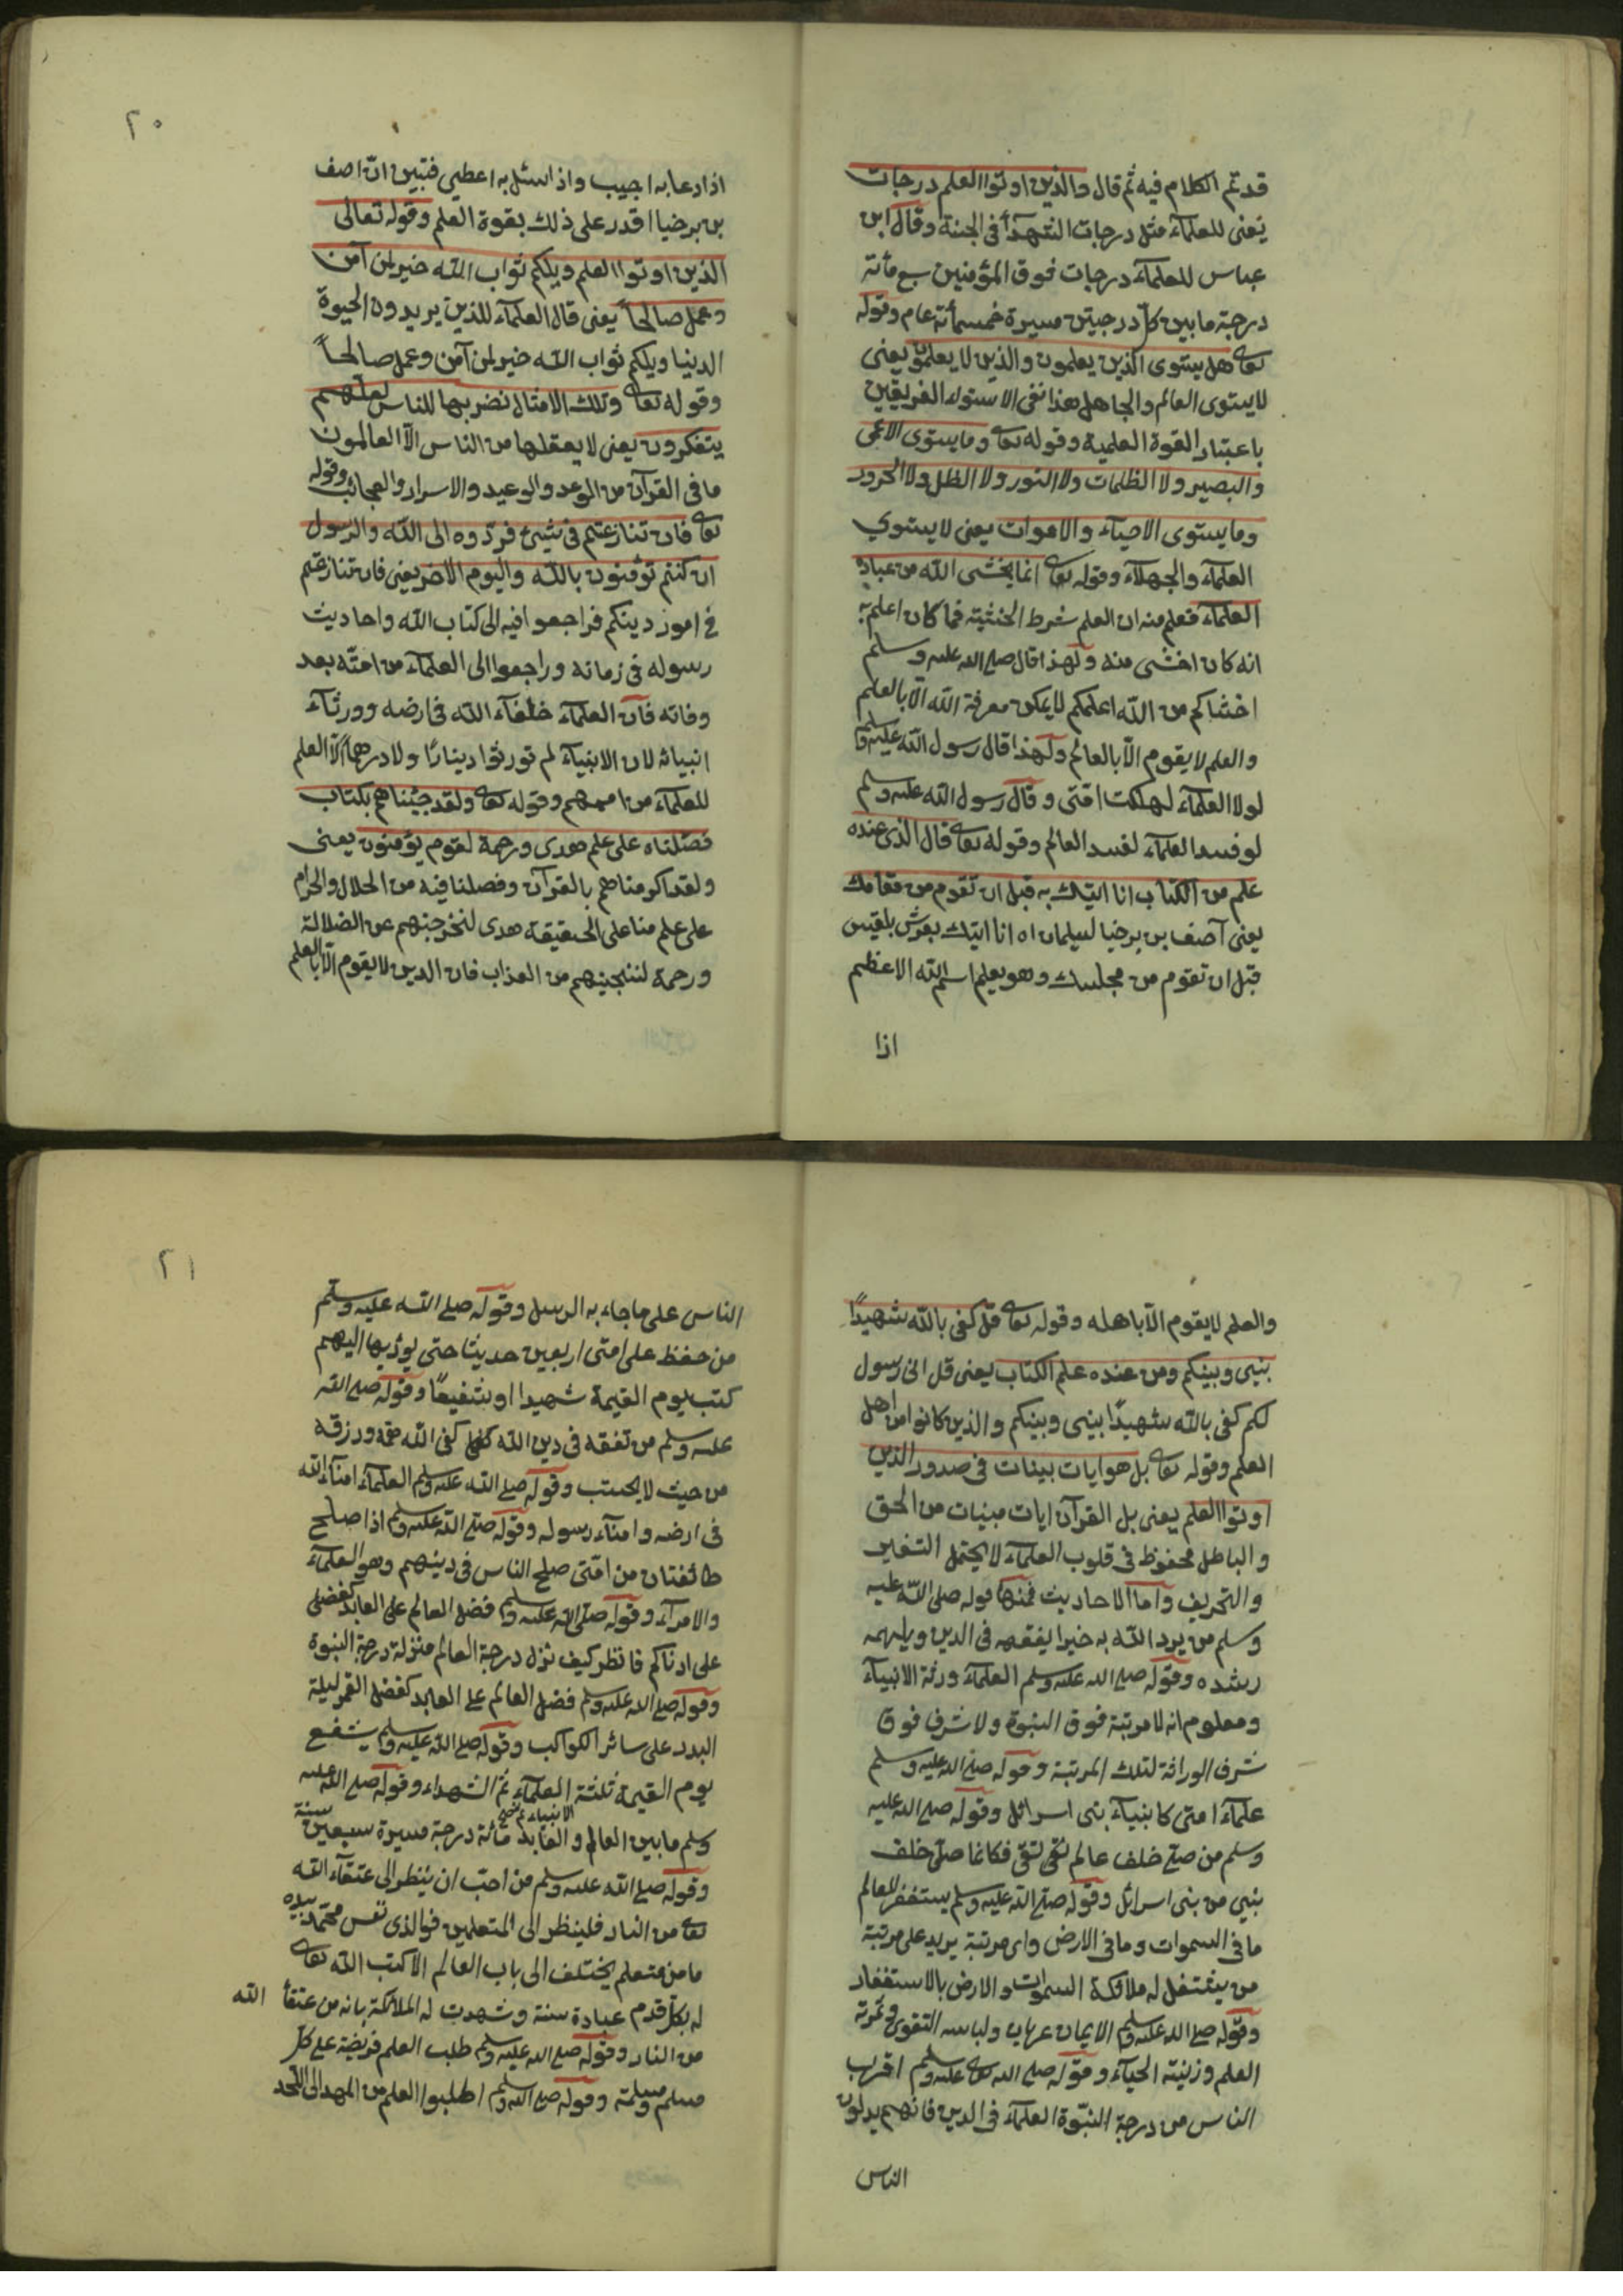 قد تم الكلام فيه ثم قال والذين اوتوا العلم درجات
يعنى للعلمآء مثل درجات الشهدآ فى الجنة وقال ابن
عباس للعلمآء درجات فوق المؤمنين سبع مأئة
درجة ما بين كل درجتين مسيرة خمسمأئة عام وقوله
تعا هل يستوى الذين يعلمون والذين لا يعلمون يعنى
لا يستوى العالم والجاهل هذا نفى الاستوآء الفريقين
باعتبار القوة العلمية وقوله تعا وما يستوى الاعمى
والبصير ولا الظلمات ولا النور ولا الظل ولا الحرور
وما يستوى الاحيآء والاموات يعنى لا يستوي
العلمآء والجهلآء وقوله تعا انما يخشى الله من عباده
العلمآء فعلم منه ان العلم شرط الخشية فما كان اعلم به
انه كان اخشى منه ولهذا قال صلى الله عليه وسلم
اخشاكم من الله اعلمكم لا يمكن معرفة الله الّا بالعلم
والعلم لا يقوم الّا بالعالم ولهذا قال رسول الله عليه وسلم
لولا العلمآء لهلكت امّتى وقال رسول الله عليه وسلم
لو فسد العلمآء لفسد العالم وقوله تعا قال الذى عنده
علم من الكتاب انا اتيك به قبل ان تقوم من مقامك
يعنى آصف بن برخيا لسليمان اه انا اتيك بعرش بلقيس
قبل ان تقوم من مجلسك وهو يعلم اسم الله الاعظم
اذا
٢٠
اذا دعا به اجيب واذا سئل به اعطي فتبين انّ اصف
بن برخيا اقدر على ذلك بقوة العلم وقوله تعالى
الذين اوتوا العلم ويلكم ثواب الله خير لمن آمن
وعمل صالحاً يعنى قال العلمآء للذين يريدون الحيوة
الدنيا ويلكم ثواب الله خير لمن آمن وعمل صالحاً
وقوله تعا وتلك الامثال نضربها للناس لعلّهم
يتفكرون يعنى لا يعقلها من الناس الّا العالمون
ما فى القرآن من الوعد والوعيد والاسرار والعجائب وقوله
تعا فان تنازعتم فى شيئ فردّوه الى الله والرسول
ان كنتم تؤمنون بالله واليوم الاخر يعنى فان تنازعتم
فى امور دينكم فراجعوا فيه الى كتاب الله واحاديث
رسوله فى زمانه وراجعوا الى العلمآء من امته بعد
وفاته فان العلمآء خلفآء الله فى ارضه وورثآء
انبيائه لان الانبيآء لم تورثوا دينارًا ولا درهماً الّا العلم
للعلمآء من اممهم وقوله تعا ولقد جئناهم بكتاب
فصّلناه على علم هدى ورحمة لقوم يؤمنون يعنى
ولقد اكرمناهم بالقرآن وفصلنا فيه من الحلال والحرام
على علم منا على الحقيقة هدى لنخرجنهم عن الضلالة
ورحمة لننجينهم من العذاب فان الدين لا يقوم الّا بالعلم
والعلم لا يقوم الّا باهله وقوله تعا قل كفى بالله شهيدًا
بينى وبينكم ومن عنده علم الكتاب يعنى قل انى رسول
لكم كفى بالله شهيدًا بينى وبينكم والذين كانوا من اهل
العلم وقوله تعا بل هو ايات بينات فى صدور الذين
اوتوا العلم يعنى بل القرآن ايات مبنيات من الحق
والباطل محفوظ فى قلوب العلمآء لا يحتمل التغير
والتحريف واما الاحاديث فمنها قوله صلى الله عليه
وسلم من يرد الله به خيرا يفقهه فى الدين ويلهمه
رشده وقوله صلى الله عليه وسلم العلمآء ورثة الانبيآء
ومعلوم انه لا مرتبة فوق النبوة ولا شرف فوق
شرف الوراثة لتلك المرتبة وقوله صلى الله عليه وسلم
علمآء امتى كانبيآء بنى اسرائل وقوله صلى الله عليه
وسلم من صلى خلف عالم تقى نقى فكانما صلى خلف
نبي من بنى اسرائل وقوله صلى الله عليه وسلم يستغفر للعالم
ما فى السموات وما فى الارض واى مرتبة يزيد على مرتبة
من يشتغل له ملائكة السموات والارض بالاستغفار
وقوله صلى الله عليه وسلم الايمان عريان ولباسه التقوى وثمرته
العلم وزينته الحيآء وقوله صلى الله تعا عليه وسلم اقرب
الناس من درجة النبّوة العلمآء فى الدين فانهم يدلون
الناس
٢١
الناس على ما جاء به الرسل وقوله صلى الله عليه وسلم
من حفظ على امتى اربعين حديثا حتى يؤديها اليهم
كتب يوم القيمة شهيدا او شفيعاً وقوله صلى الله
عليه وسلم من تفقه فى دين الله كفى الله همّه ورزقه
من حيث لا يحتسب وقوله صلى الله عليه وسلم العلمآء امنآء الله
فى ارضه وامنآء رسوله وقوله صلى الله عليه وسلم اذا صلح
طائفتان من امّتى صلح الناس فى دينهم وهو العلمآء
والامرآء وقوله صلى الله عليه وسلم فضل العالم على العابد كفضلى
على ادناكم فانظر كيف نزل درجة العالم منزلة درجة النبوة
وقوله صلى الله عليه وسلم فضل العالم على العابد كفضل القمر ليلة
البدر على سائر الكواكب وقوله صلى الله عليه وسلم يشفع
يوم القيمة ثلثة العلمآء ثمّ الشهداء وقوله صلى الله عليه
الانبياء ثم صح
وسلم ما بين العالم والعابد مائة درجة مسيرة سبعين سنة
وقوله صلى الله عليه وسلم من احبّ ان ينظر الى عتقآء الله
تعا من النار فلينظر الى المتعلمين فو الذى نفس محمّد بيده
ما من متعلم يختلف الى باب العالم الا كتب الله تعا
له بكلّ قدم عبادة سنة وشهدت له الملائكة بانه من عتقآ الله
من النار وقوله صلى الله عليه وسلم طلب العلم فريضة على كلّ
مسلم ومسلمة وقوله صلى الله وسلم اطلبوا العلم من المهد الى اللّحد